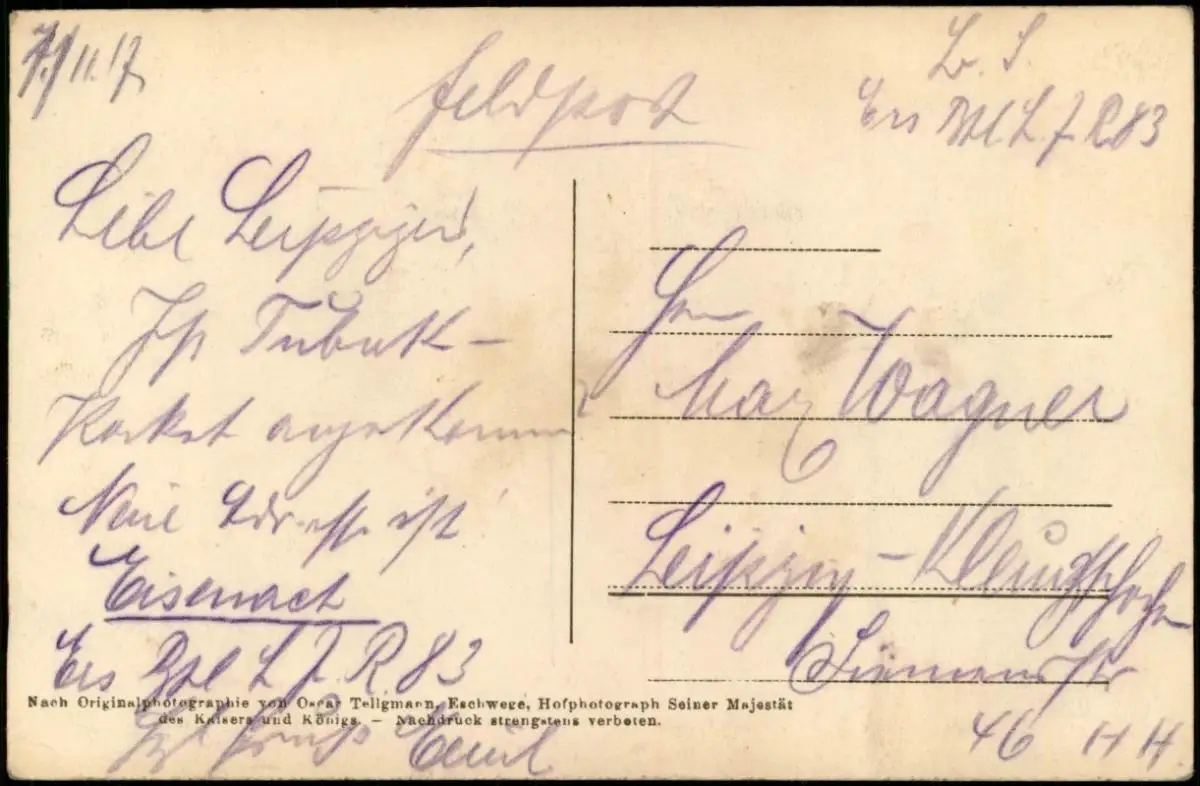 7/11.17
Feldpost
L. S.
Ers Btl L. J. R 83
Liebe Leipziger!,
Ist Tabak-
Packet angekommen
Neue Adresse ist
Eisenach
Ers Btl L J. R. 83
Gruß Emil
Nach Originalphotographie von Oscar Tellgmann, Eschwege, Hofphotograph Seiner Majestät
des Kaisers und Königs. — Nachdruck strengstens verboten.
Herrn
Max Wagner
Leipzig - Kleinzschocher
Siemensstr
46 H H.